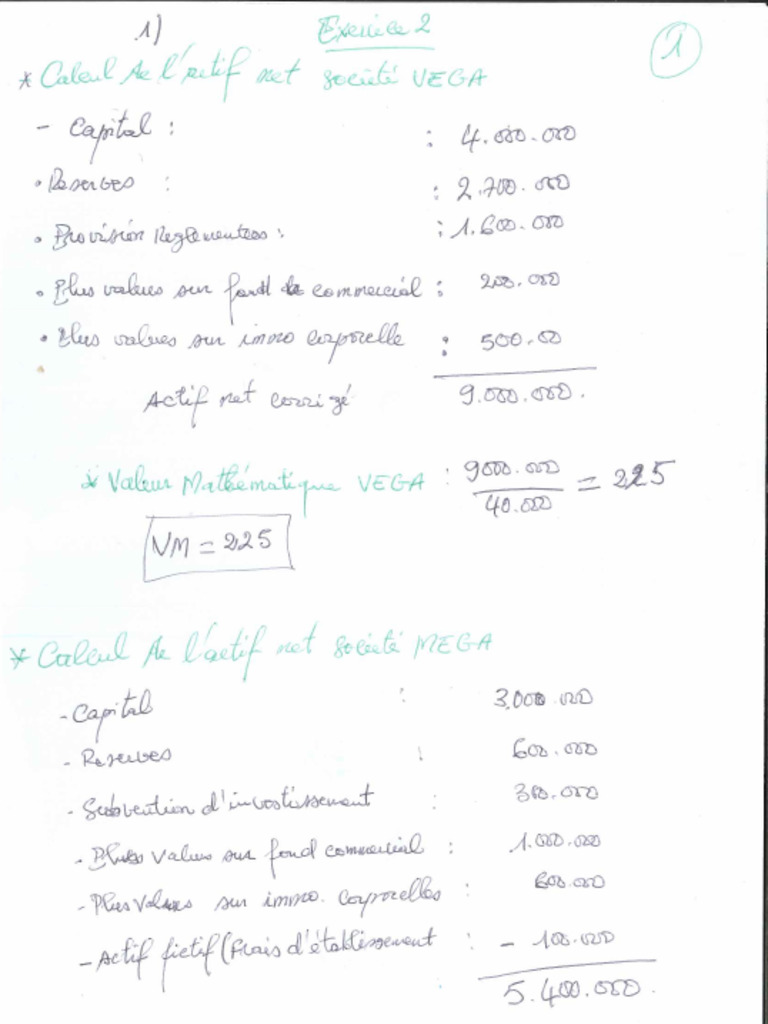 1) Exercice 2 1
* Calcul de l'actif net société VEGA
- Capital : : 4.000.000
• Reserves : : 2.700.000
• Provision Reglementees : : 1.600.000
• Plus values sur fond de commercial : 200.000
• Plus values sur immo corporelle : 500.00
Actif net corrigé 9.000.000.
* Valeur Mathématique VEGA : 9000.000 / 40.000 = 225
VM = 225
* Calcul de l'actif net société MEGA
- Capital : 3.000.000
- Reserves : 600.000
- Subvention d'investissement : 300.000
- Plus values sur fond commercial : 1.000.000
- Plus Values sur immo. corporelles : 600.000
- Actif fictif (Frais d'établissement : - 100.000
: 5.400.000.